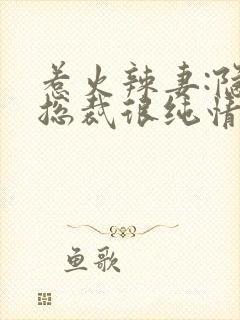 惹火辣妻:隐
总裁很纯情
鱼歌